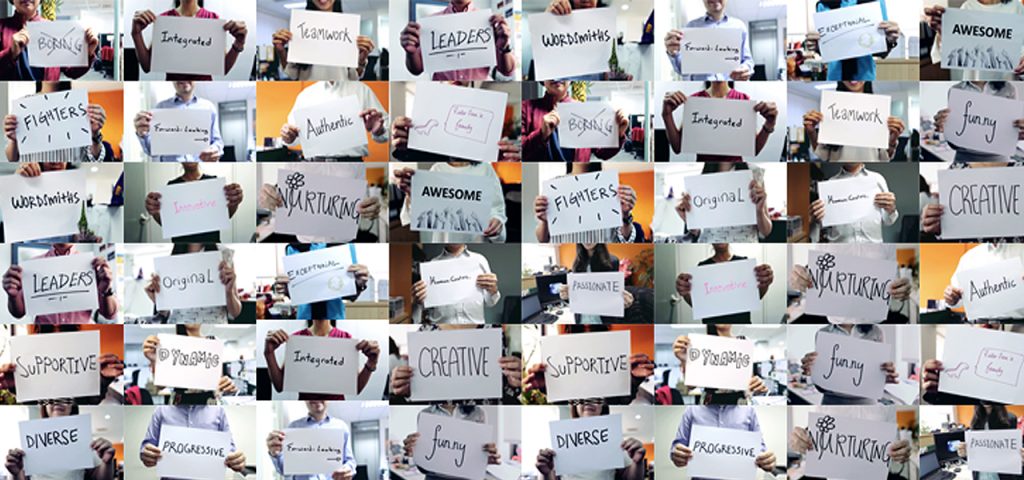 BORING
Integrated
Teamwork
LEADERS
WORDSMITHS
Forward-Looking
EXCEPTIONAL
AWESOME
FIGHTERS
Forward-Looking
Authentic
BORING
Integrated
Teamwork
funny
WORDSMITHS
Innovative
NURTURING
AWESOME
FIGHTERS
OriginaL
Human Centric
CREATIVE
LEADERS
OriginaL
EXCEPTIONAL
Human Centric
PASSIONATE
Innovative
NURTURING
Authentic
SuPPORTIVE
DYNAMIC
Integrated
CREATIVE
SuPPORTIVE
DYNAMIC
funny
DIVERSE
PROGRESSIVE
Forward-Looking
funny
DIVERSE
PROGRESSIVE
NURTURING
PASSIONATE